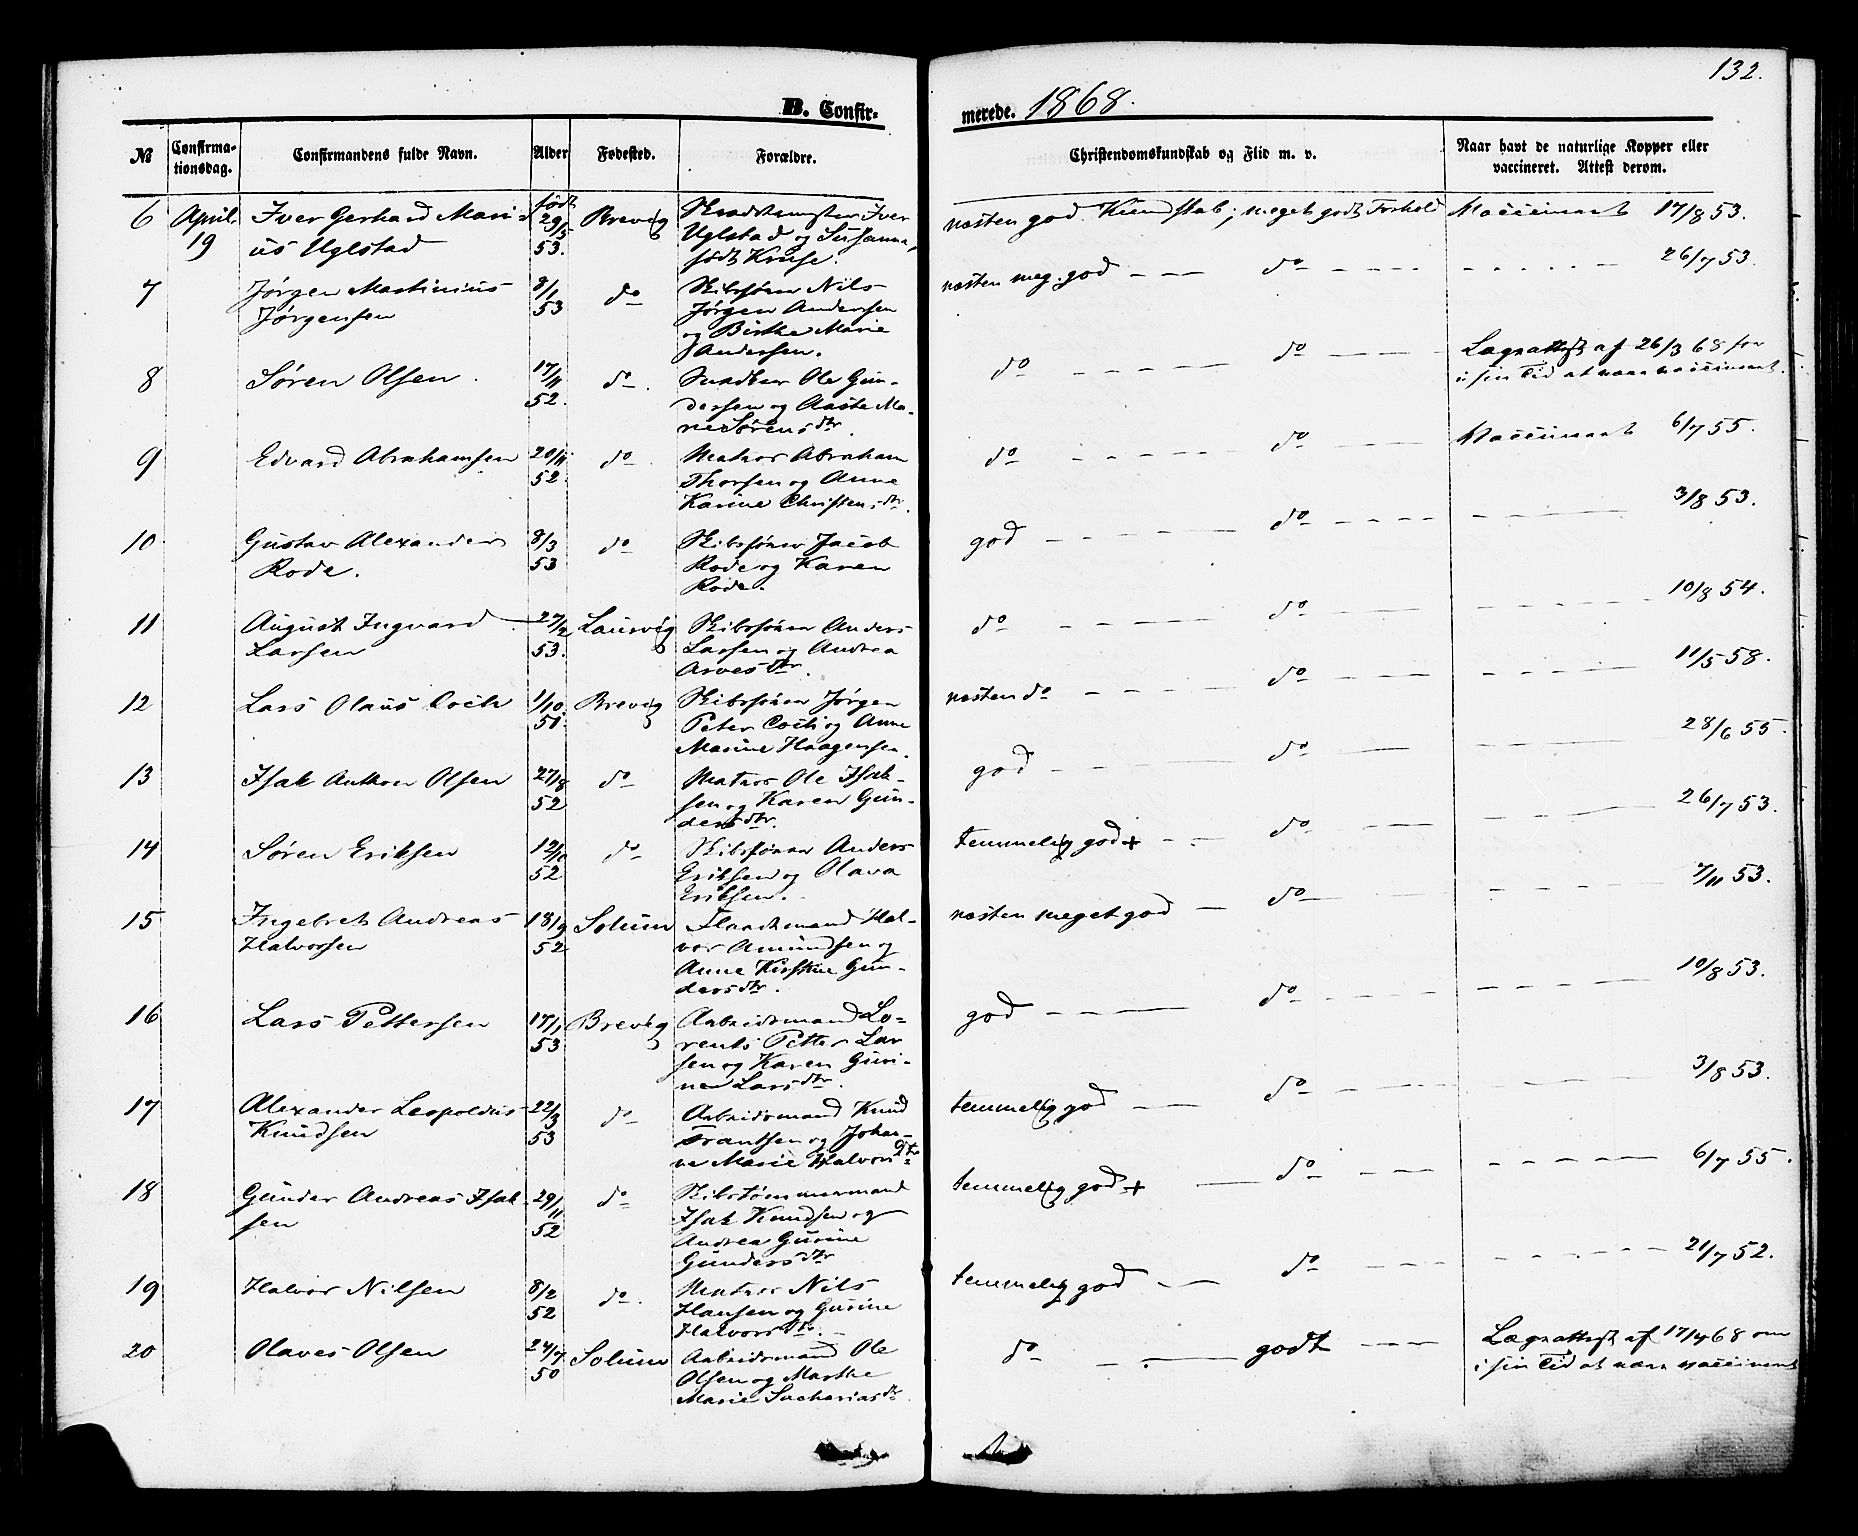 132.
B. Confir-
merede. 1868.
№
Confirma-
tionsdag.
Confirmandens fulde Navn.
Alder
Fødested.
Forældre.
Christendomskundskab og Flid m. v.
Naar havt de naturlige Kopper eller
vaccineret. Attest derom.
6 April 19
Iver Gerhard Mari-
us Uglstad
født 29/5 53.
Brevig
Iver
Uglstad og Susanna,
født Kruse.
næsten god Kundskab; meget godt Forhold
Vaccineret 17/8 53.
7
Jørgen Martinius
Jørgensen
8/1 53
do
Skibsfører Nils
Jørgen Andersen
og Birthe Marie
Andersen.
næsten meg. god — — do
26/7 53.
8
Søren Olsen.
17/11 52.
do.
Ole Gun-
dersen og Aaste Ma-
rie Sørensdtr.
do do
Lægeattest af 26/3 68 for
i sin Tid at være vaccineret.
9
Edvard Abrahamsen
20/11 52.
do.
Matros Abraham
Thorsen og Anne
Karine Christensdtr.
do do
Vaccineret 6/7 55.
10
Gustav Alexander
Rode.
8/3 53
do
Skibsfører Jacob
Rode og Karen
Rode.
god do
3/8 53.
11
August Ingvard
Larsen
27/2 53.
Laurvig
Skibsfører Anders
Larsen og Andrea
Arvesdtr.
do do
10/8 54.
12
Lars Olaus Coch
1/10 51.
Brevig
Skibsfører Jørgen
Peter Coch og Anne
Marine Haagensen.
næsten do do
11/5 58.
13
Isak Anthon Olsen
27/8 52
do
Matros Ole Isak-
sen og Karen Gun-
dersdtr.
god do
28/6 55.
14
Søren Eriksen
12/10 52
do
Skibsfører Anders
Eriksen og Olava
Eriksen.
temmelig god + do
26/7 53.
15
Ingebret Andreas
Halvorsen
18/9 52
Solum
Flaadtmand Hal-
vor Amundsen og
Anne Kirstine Gun-
dersdtr.
næsten meget god — do
7/11 53.
16
Lars Pettersen
17/1 53
Brevig
Arbeidsmand Lo-
rents Petter Lar
sen og Karen Guri-
ne Larsdtr.
god do
10/8 53.
17
Alexander Leopoldus
Knudsen
22/3 53
do
Arbeidsmand Knud
Frantsen og Johan-
ne Marie Halvorsdtr
temmelig god do
3/8 53.
18
Gunder Andreas Isak-
sen
29/11 52
do
Skibstømmermand
Isak Knudsen og
Andrea Gurine
Gundersdtr
temmelig god + do
6/7 55.
19
Halvor Nilsen
8/2 52
do.
Matros Nils
Hansen og Gurine
Halvorsdtr.
temmelig god do
21/7 52.
20
Olaves Olsen
24/7 50
Solum
Arbeidsmand Ole
Olsen og Marthe
Marie Sachariasdtr.
do godt
Lægeattest af 17/4 68 om
i sin Tid at være vaccineret